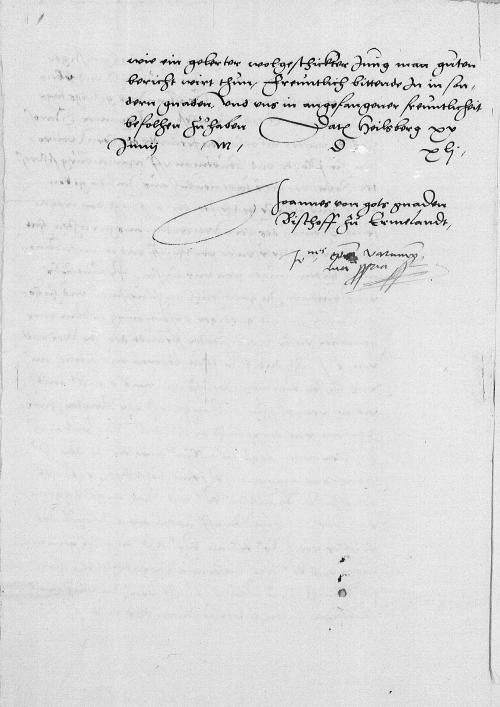 wie ein gelerter wolgeschickter Jung man guten
bericht wirt thun, freuntlich bittende In in son,
dern gnaden, und uns in angefangener freuntlicheit
befolhen zu haben Dat. Heilsberg xv
Junij M D xLj.
Joannes von gots gnaden
Bischoff zu Ermelandt,